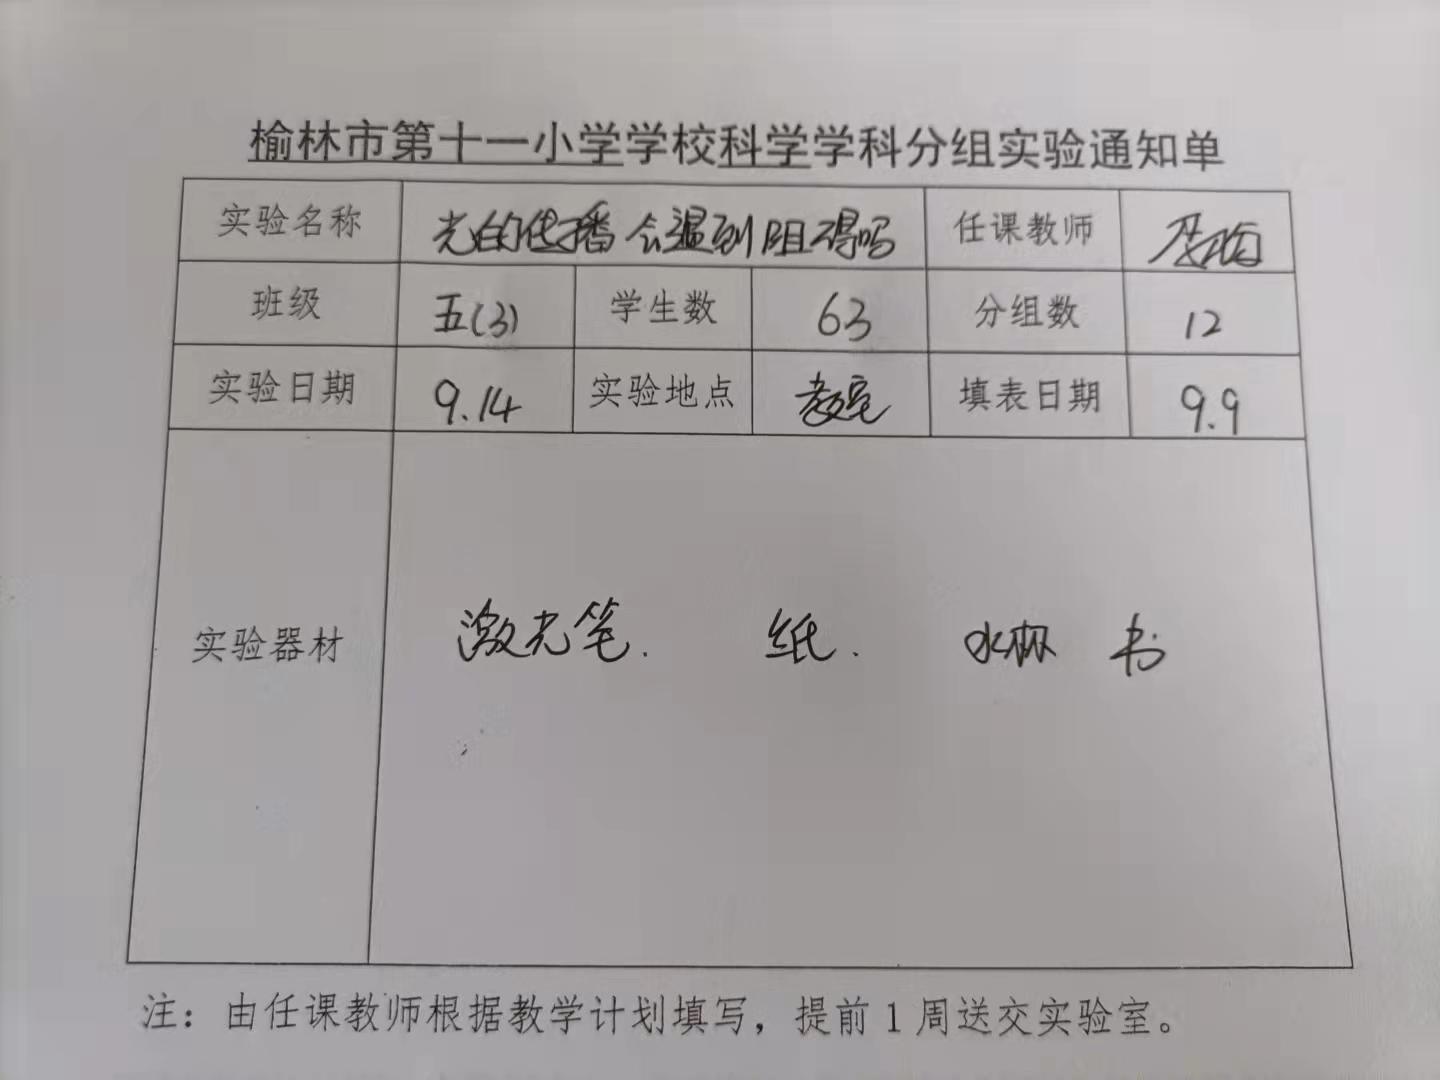 榆林市第十一小学学校科学学科分组实验通知单
实验名称 光的传播会遇到阻碍吗 任课教师
班级 五(3) 学生数 63 分组数 12
实验日期 9.14 实验地点 教室 填表日期 9.9
实验器材 激光笔. 纸. 水杯 书
注：由任课教师根据教学计划填写，提前1周送交实验室。